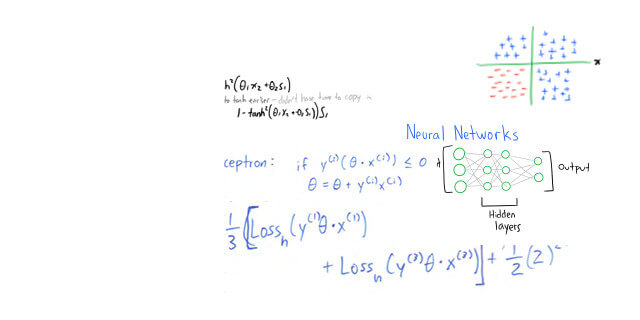 x
h²(θ₁x₂+θ₂s₁)
to tanh earlier - didn't have time to copy
1-tanh²(θ₁x₂+θ₂s₁))s₁
Neural Networks
ceptron: if y⁽ⁱ⁾(θ·x⁽ⁱ⁾) ≤ 0
θ = θ + y⁽ⁱ⁾x⁽ⁱ⁾
Output
Hidden
layers
1/3 [Loss_h(y⁽¹⁾θ·x⁽¹⁾)
+ Loss_h(y⁽²⁾θ·x⁽²⁾)] + 1/2(2)²